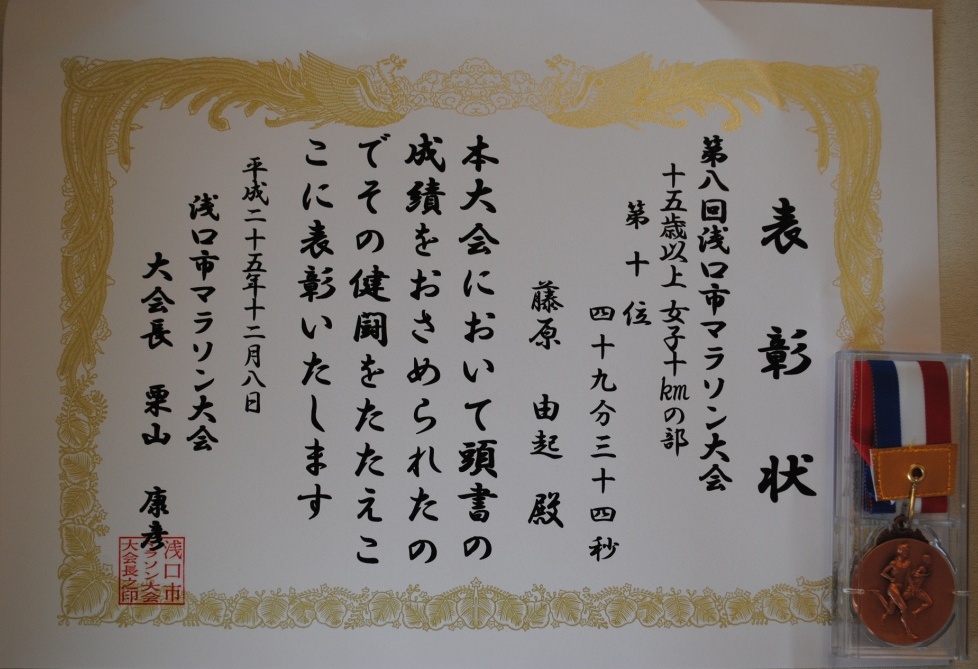 表彰状
第八回浅口市マラソン大会
十五歳以上 女子十kmの部
第十位
四十九分三十四秒
藤原 由起 殿
本大会において頭書の
成績をおさめられたの
でその健闘をたたえこ
こに表彰いたします
平成二十五年十二月八日
浅口市マラソン大会
大会長 栗山 康彦
浅口市
マラソン大会
大会長之印